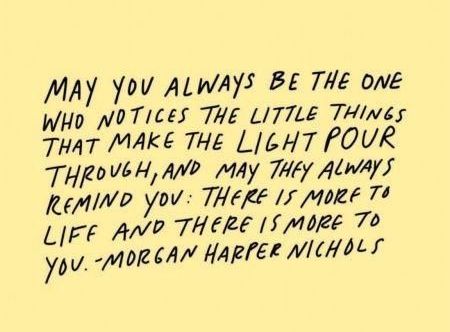 MAY YOU ALWAYS BE THE ONE
WHO NOTICES THE LITTLE THINGS
THAT MAKE THE LIGHT POUR
THROUGH, AND MAY THEY ALWAYS
REMIND YOU: THERE IS MORE TO
LIFE AND THERE IS MORE TO
YOU. -MORGAN HARPER NICHOLS